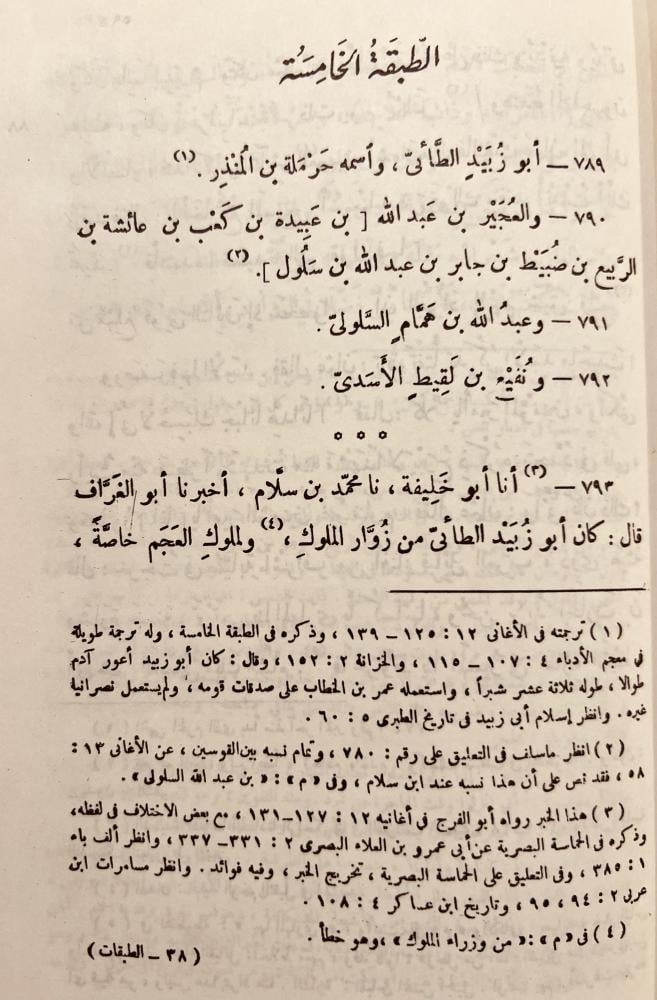 الطَّبَقَةُ الخَامِسَة
٧٨٩ — أبو زُبَيْدٍ الطَّائىّ ، وٱسمه حَرْمَلة بن المُنْذِر . (١)
٧٩٠ — والعُجَيْر بن عَبد الله [ بن عَبِيدة بن كَعْب بن عائشة بن
الرَّبيع بن ضُبَيْط بن جابر بن عبد الله بن سَلُول ]. (٢)
٧٩١ — وعبدُ الله بن هَمَّامٍ السَّلولىّ .
٧٩٢ — ونُفَيْع بن لَقِيطٍ الأَسَدىّ .
* * *
٧٩٣ — (٣) أنا أبو خَلِيفة ، نا محمّد بن سلَّام ، أخبرنا أبو الغَرَّاف
قال : كان أبو زُبَيْد الطائىّ من زُوَّار الملوكِ ، (٤) ولملوكِ العَجَم خاصَّةً ،
( ١ ) ترجمته فى الأغانى ١٢ : ١٢٥ – ١٣٩ ، وذكره فى الطبقة الخامسة ، وله ترجمة طويلة
فى معجم الأدباء ٤ : ١٠٧ – ١١٥ ، والخزانة ٢ : ١٥٢ ، وقال : كان أبو زبيد أعور آدم
طوالا ، طوله ثلاثة عشر شبراً ، واستعمله عمر بن الخطاب على صدقات قومه ، ولم يستعمل نصرانية
غيره . وانظر إسلام أبى زبيد فى تاريخ الطبرى ٥ : ٦٠ .
( ٢ ) انظر ماسلف فى التعليق على رقم : ٧٨٠ ، وتمام نسبه بين القوسين ، عن الأغانى ١٣ :
٥٨ ، فقد نص على أن هذا نسبه عند ابن سلام ، وفى « م » : « بن عبد الله السلولى » .
( ٣ ) هذا الخبر رواه أبو الفرج فى أغانيه ١٢ : ١٢٧–١٣١ ، مع بعض الاختلاف فى لفظه،
وذكره فى الحماسة البصرية عن أبى عمرو بن العلاء البصرى ٢ : ٣٣١ – ٣٣٧ ، وانظر ألف باء
١ : ٣٨٥ ، وفى التعليق على الحماسة البصرية ، تخريج الخبر ، وفيه فوائد . وانظر مسامرات ابن
عربى ٢ : ٩٤ ، ٩٥ ، وتاريخ ابن عساكر ٤ : ١٠٨ .
( ٤ ) فى « م » : « من وزراء الملوك » ، وهو خطأ .
( ٣٨ – الطبقات )